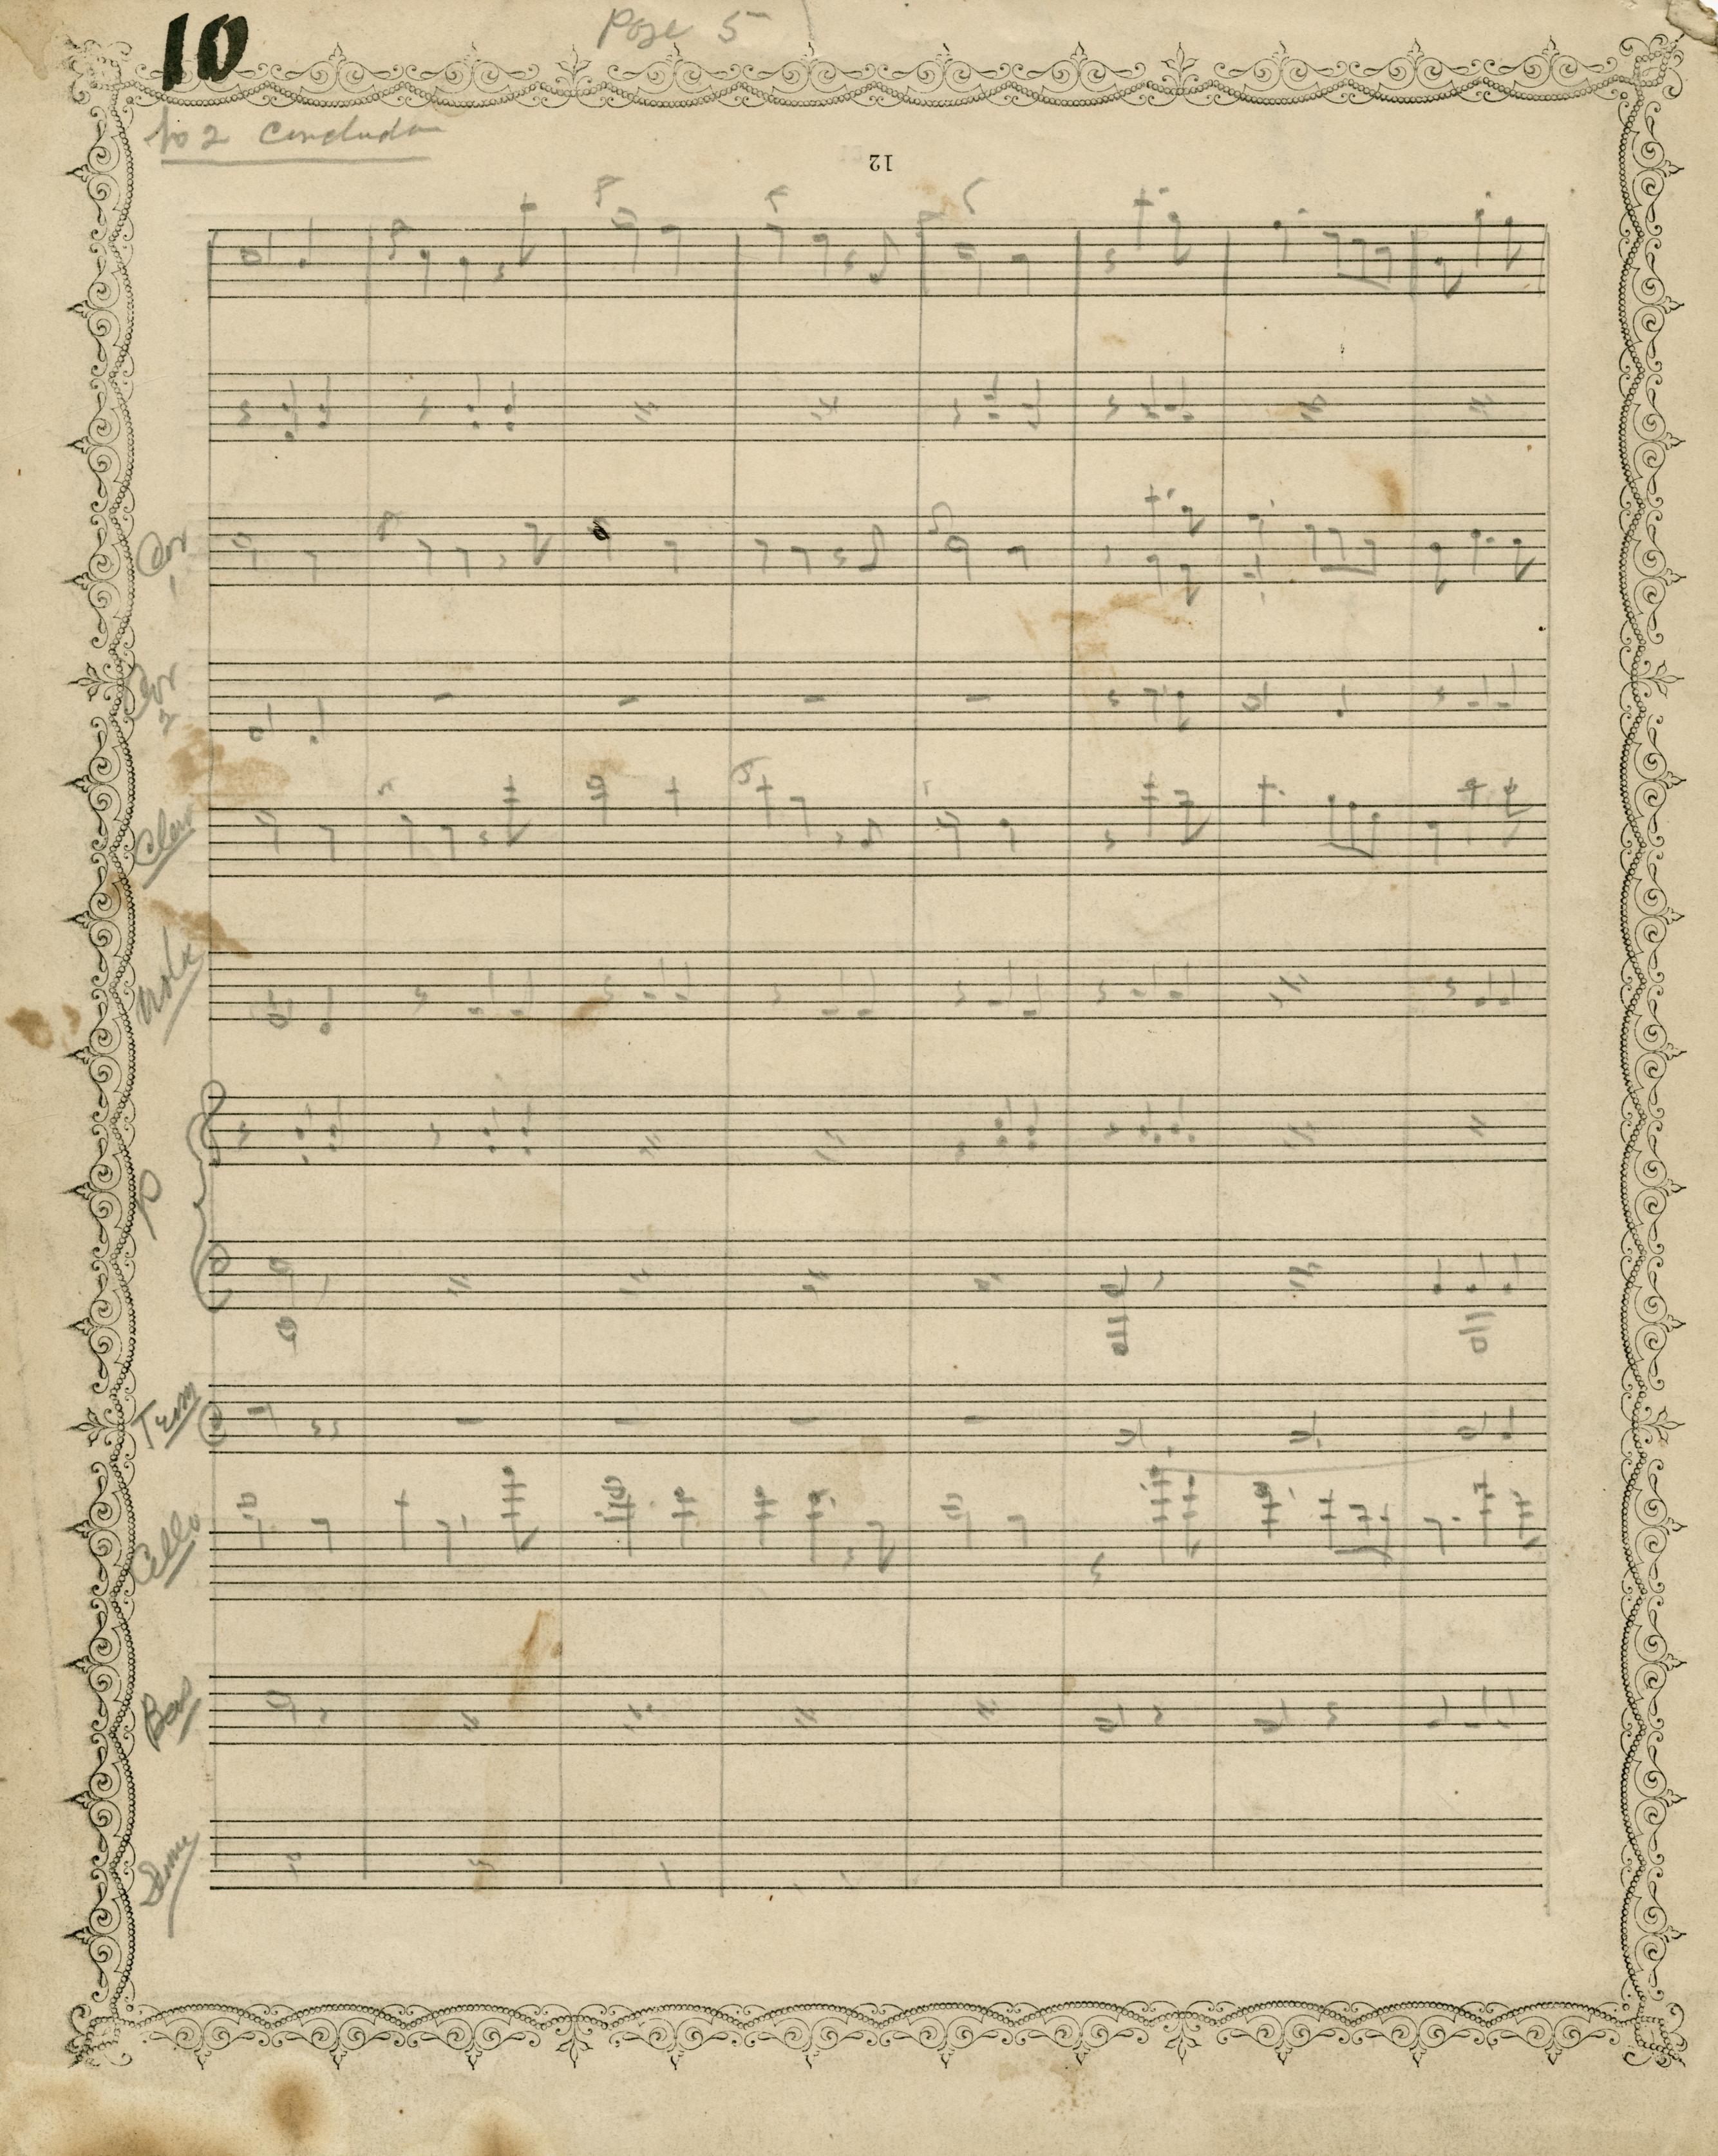 10
Page 5
No 2 Conclusion
12
Cor
1
Cor
2
Clar
Viola
P
Trom
Cello
Bas
Drum